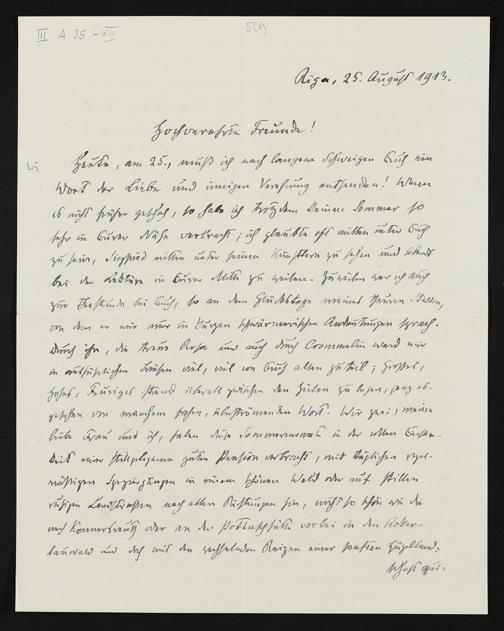 III A 35 -XII
5(1)
Riga, 25. August 1913.
Hochverehrte Freunde!
Heute, am 25., muß ich nach langem Schweigen Euch ein
Wort der Liebe und innigen Verehrung entsenden! Wenn
es nicht früher geschah, so habe ich trotzdem keinen Sommer so
sehr in Eurer Nähe verbracht; ich glaubte oft mitten unter Euch
zu sein, Siegfried mitten unter seinen Künstlern zu sehen und abends
bei der Lektüre in Eurer Mitte zu weilen. Zuweilen war ich auch
zur Teestunde bei Euch, so an dem Glückstage meines
von dem er mir nur in kurzen schwärmerischen Andeutungen sprach.
Durch ihn, die treue Rosa und auch durch Crommelin ward mir
in ausführlichen Briefen viel, viel von Euch allen zu teil; Großes,
Hohes, Freudiges stand überall zwischen den Zeilen zu lesen, ganz ab-
gesehen von manchem frohen, überströmenden Wort. Wir zwei, meine
liebe Frau und ich, haben diese Sommermonate in der
einer stillgelegenen guten Pension verbracht, mit täglichen regel-
mäßigen Spaziergängen in einem schönen Wald oder auf stillen
ruhigen Landstraßen nach allen Richtungen hin, nicht so schön wie die
nach Konnersreuth oder an der vorbei in den
und doch mit den wechselnden Reizen einer sanften Hügelland-
schaft